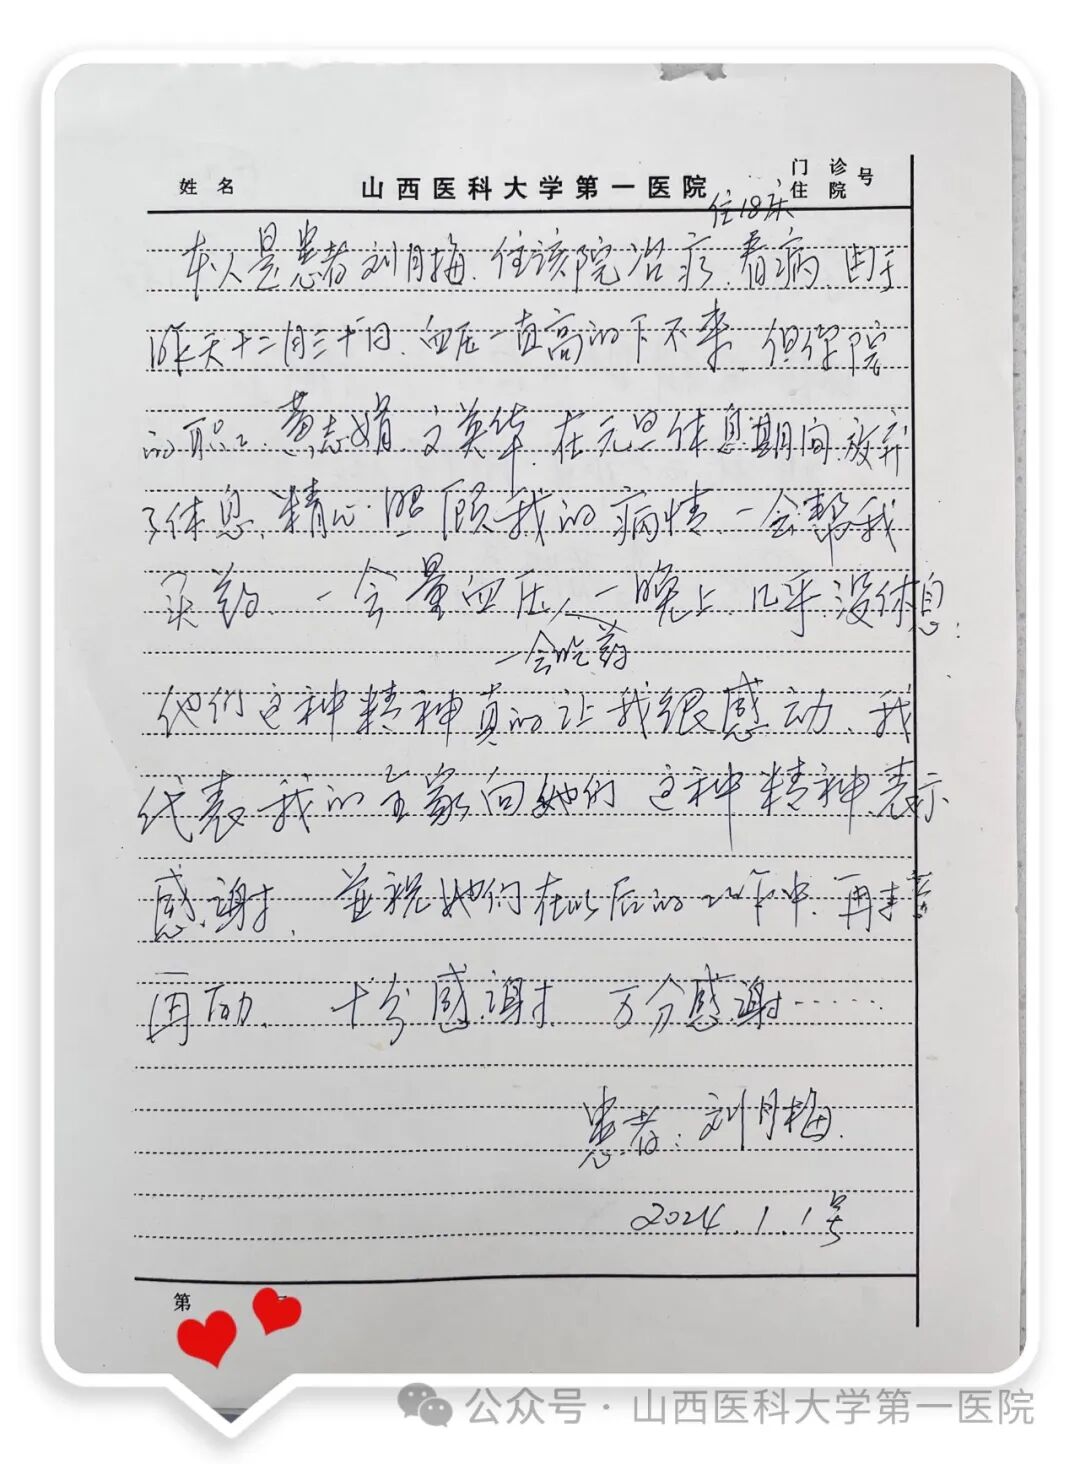 姓 名 山西医科大学第一医院 门诊 住院 号
住18床
本人是患者刘月梅、住该院治疗、看病、由于
昨天十二月三十一日、血压一直高的下不来、但你院
的职工、黄志娟、文英华、在元旦休息期间、放弃
了休息、精心照顾我的病情、一会帮我
买药、一会量血压、一晚上、几乎没休息:
一会吃药
他们这种精神真的让我很感动、我
代表我的全家向她们这种精神表示
感谢、並祝她们在以后的工作中、再接
再励、 十分感谢、 万分感谢……
患者:刘月梅.
2024.1.1号
第
公众号·山西医科大学第一医院